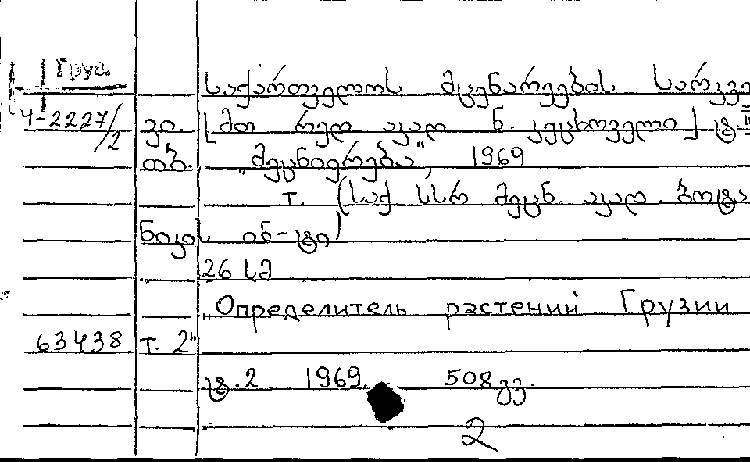 Груз.
საქართველოს მცენარეების სარკვე
Ч-2227/2 ვი. [მთ რედ აკად ნ. კეცხოველი] ტ. II
თბ. „მეცნიერება“, 1969
т. (საქ სსრ მეცნ აკად ბოტა
ნიკის ინ-ტი)
26 სმ
„Определитель растений Грузии
63438 т. 2“
ტ. 2 1969. 508 გვ.
2